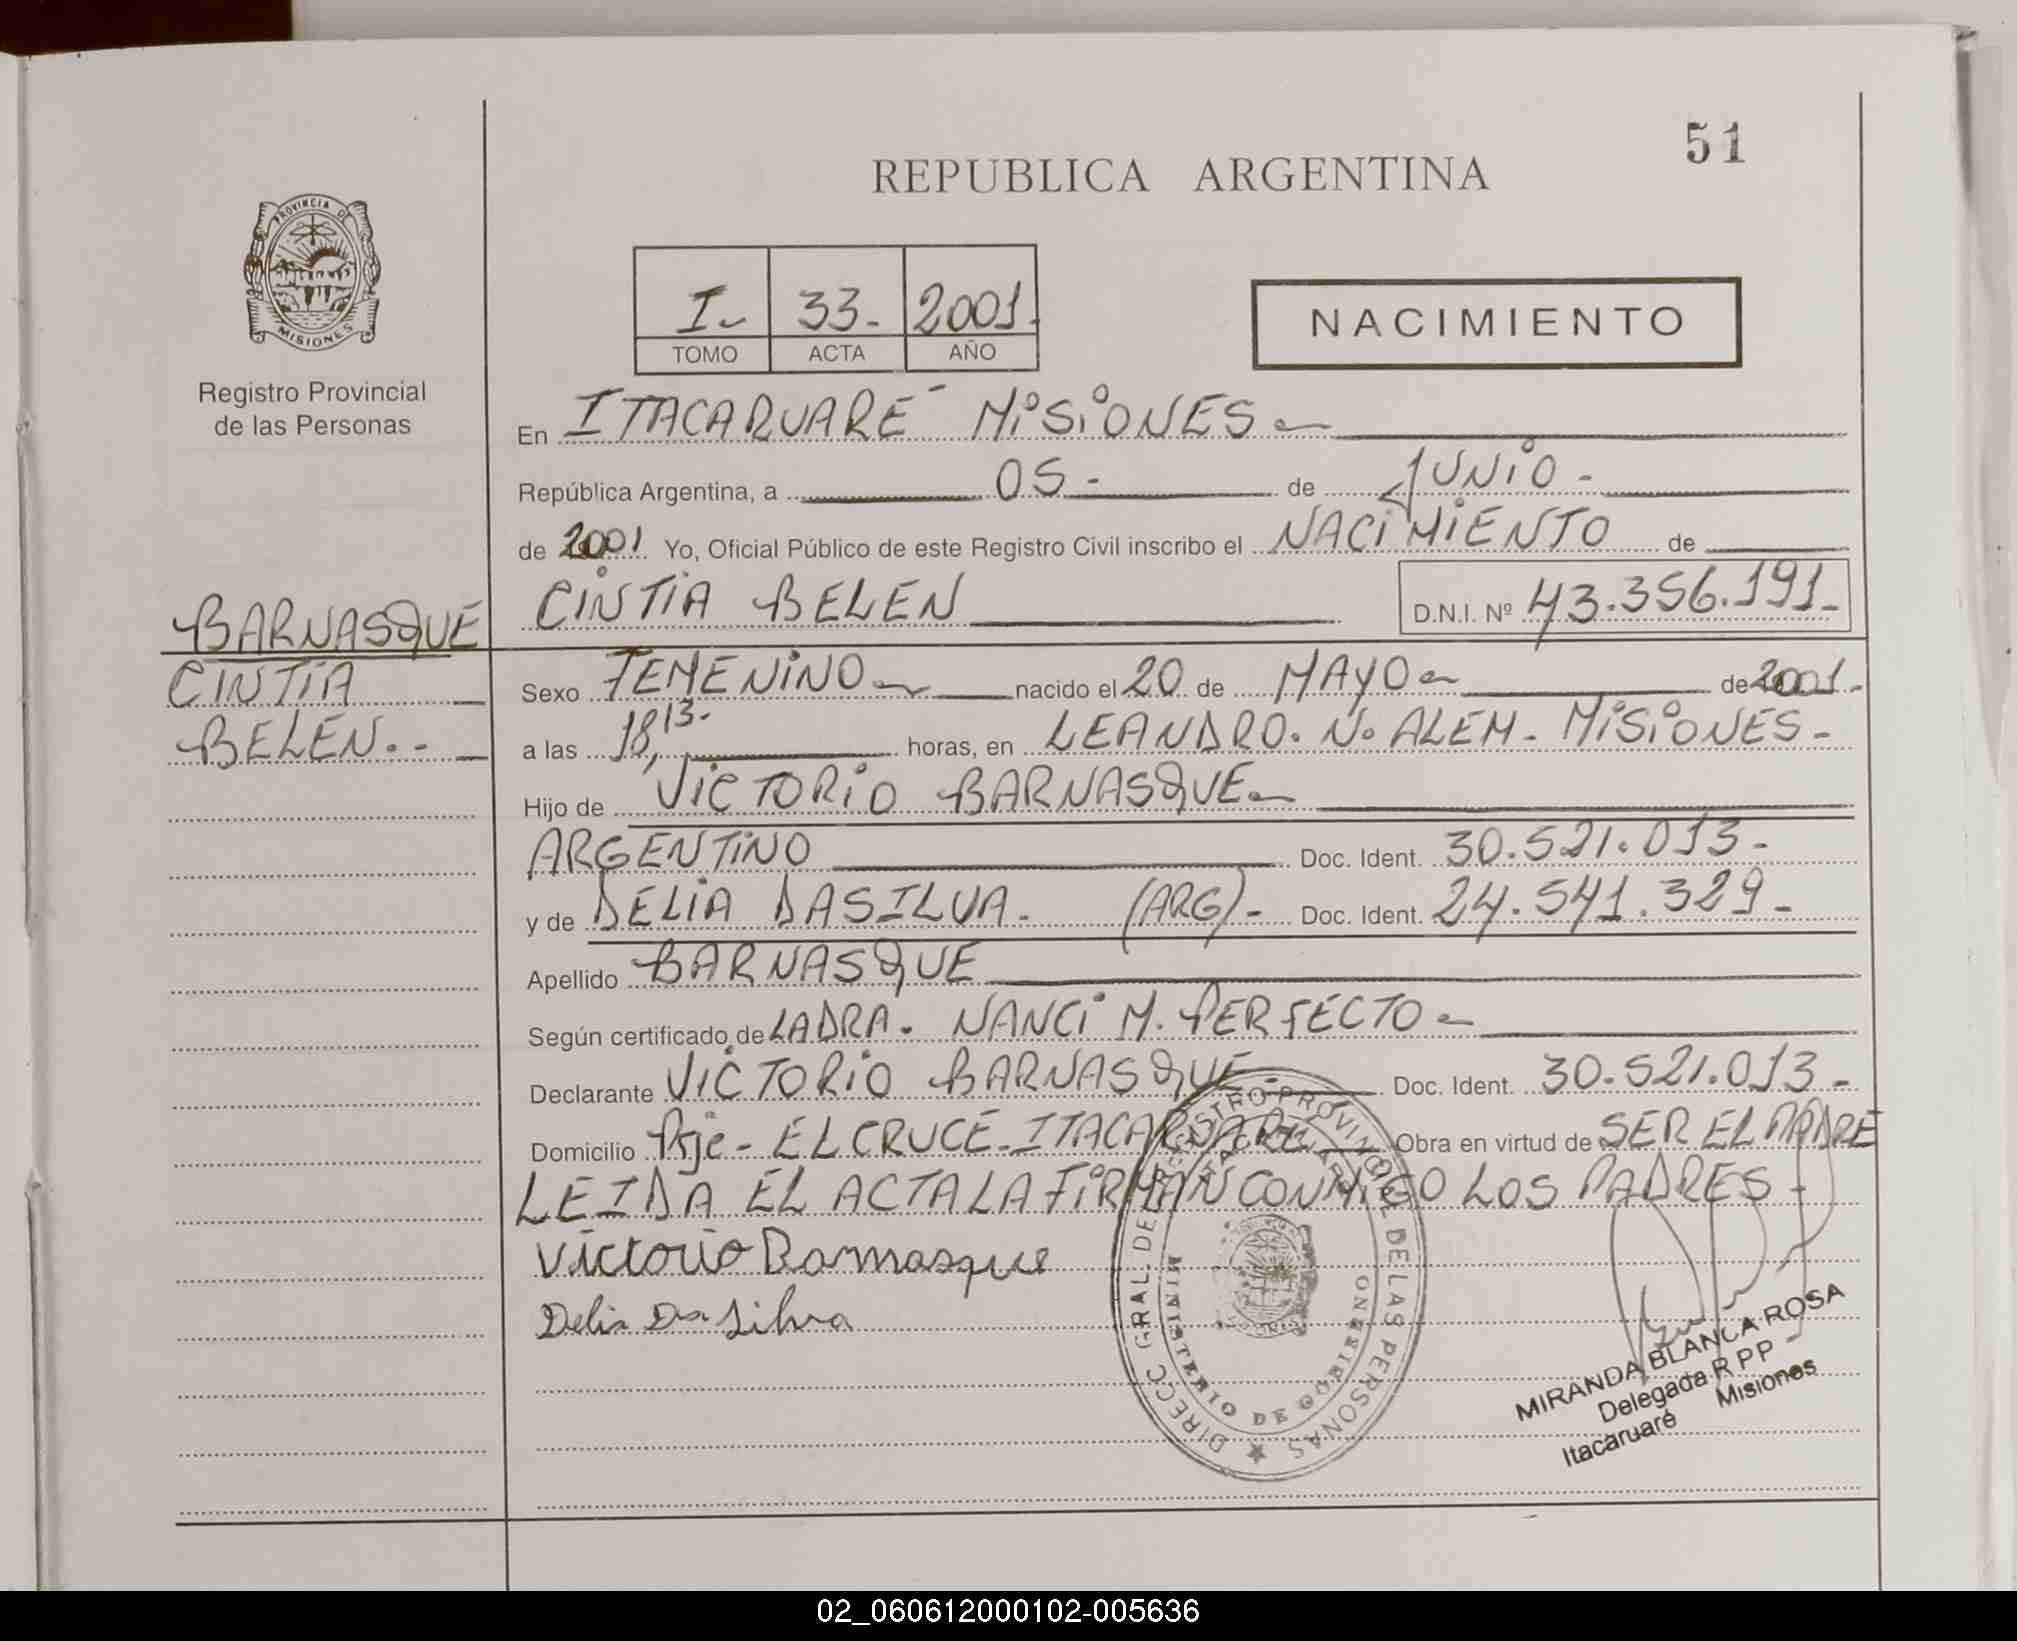 51
REPUBLICA ARGENTINA
PROVINCIA DE
MISIONES
Registro Provincial
de las Personas
I- 33- 2001-
TOMO ACTA AÑO
NACIMIENTO
En ITACARUARE MISIONES-
República Argentina, a 05- de JUNIO-
de 2001 Yo, Oficial Público de este Registro Civil inscribo el NACIMIENTO de
CINTIA BELEN D.N.I. Nº 43.356.191-
BARNASQUE
CINTIA
BELEN.-
Sexo FEMENINO- nacido el 20 de MAYO- de 2001-
a las 18,13- horas, en LEANDRO. N. ALEM- MISIONES-
Hijo de VICTORIO BARNASQUE-
ARGENTINO Doc. Ident. 30.521.013-
y de DELIA DASILVA- (ARG)- Doc. Ident. 24.541.329-
Apellido BARNASQUE
Según certificado de LADRA. NANCI M. PERFECTO-
Declarante VICTORIO BARNASQUE- Doc. Ident. 30.521.013-
Domicilio Pje- EL CRUCE- ITACARUARE Obra en virtud de SER EL PADRE
LEIDA EL ACTA LA FIRMAN CONMIGO LOS PADRES-
Victorio Barnasque
Delia Da Silva
DIRECC GRAL. DE REGISTRO PROVINCIAL DE LAS PERSONAS
ITACARUARE
MINISTERIO DE GOBIERNO
MIRANDA BLANCA ROSA
Delegada R P P
Itacaruaré Misiones
02_060612000102-005636